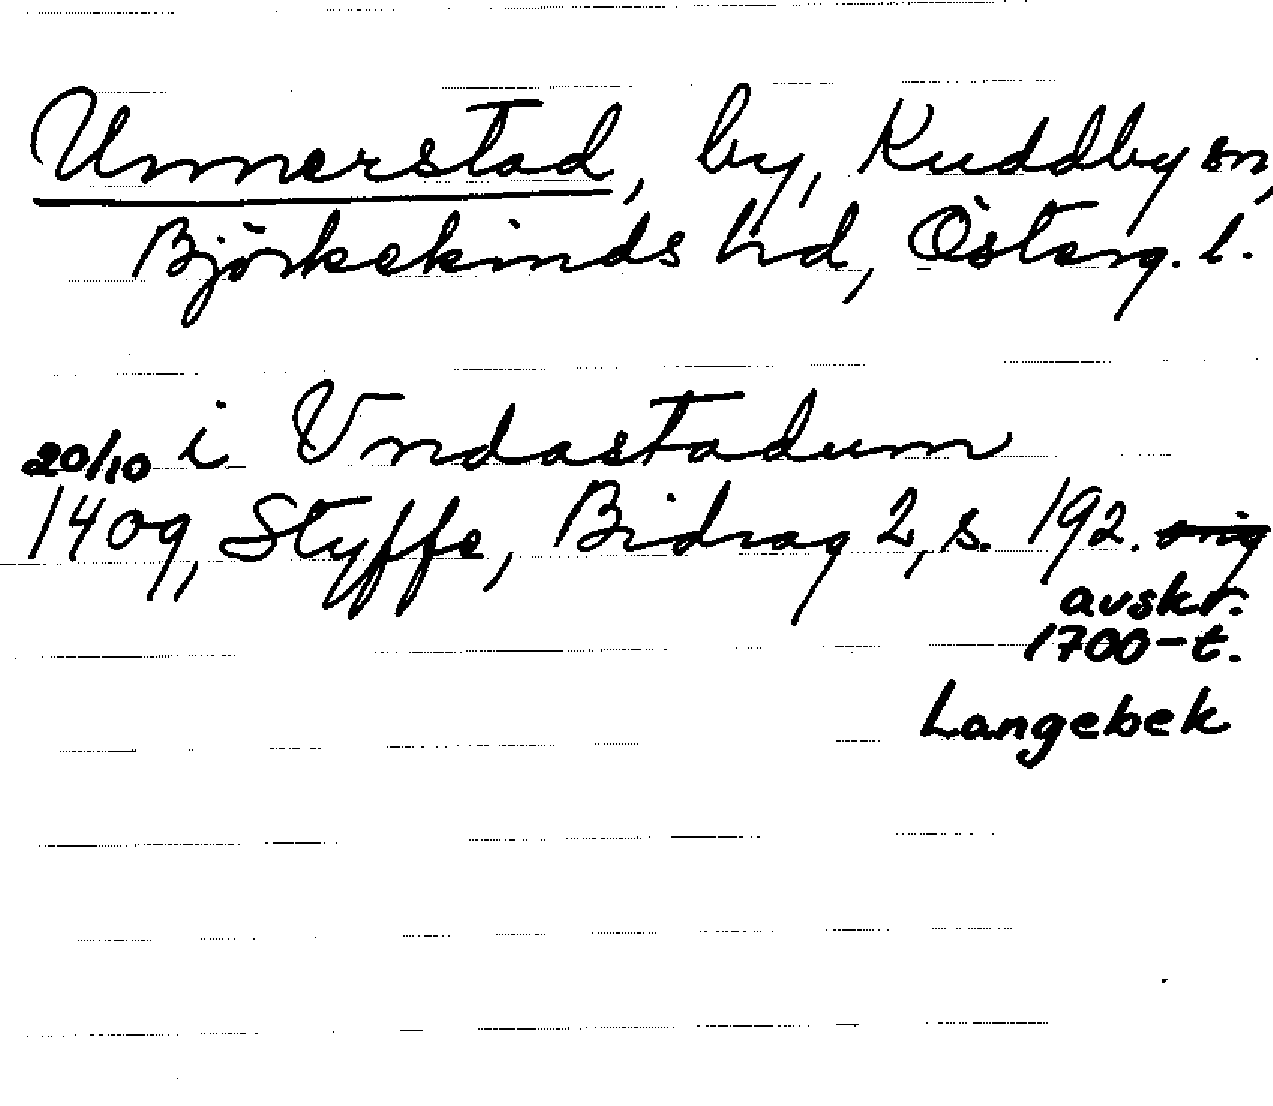 Unnerstad, by, Kuddby sn,
Björkekinds hd, Österg. l.
i Vndastadum
20/10
1409, Styffe, Bidrag 2, s. 192. orig
avskr.
1700-t.
Langebek